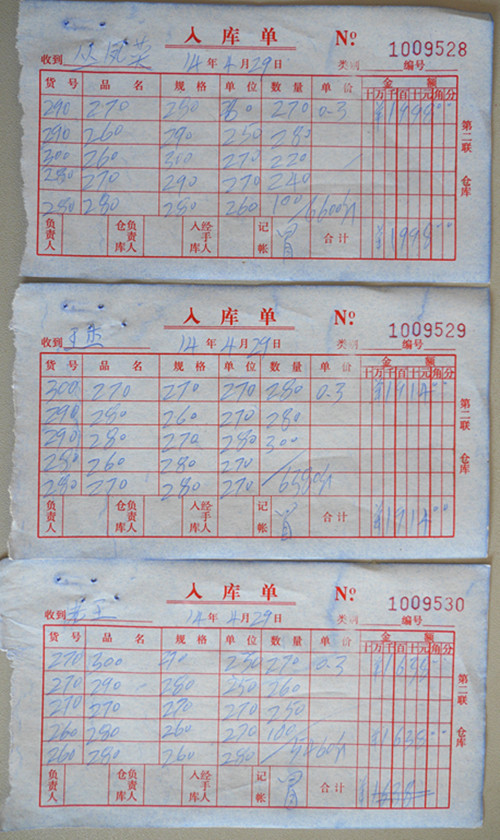 入库单 № 1009528
收到 14年4月29日 类别 编号
货号 品名 规格 单位 数量 单价 金额
十万千百十元角分
290 270 250 270 0-3 ¥1998 00
290 260 290 250 280
300 260 300 270 220
280 270 290 270 240
280 280 280 260 100 / 6600斤
负责人 仓库负责人 经手人入 记帐 合计 ¥1998 00
第二联 仓库
入库单 № 1009529
收到 14年4月29日 类别 编号
货号 品名 规格 单位 数量 单价 金额
十万千百十元角分
300 270 270 270 280 0-3 ¥1914 00
290 280 260 270 280
290 280 270 280 300
280 260 280 270
280 270 280 270 / 6380斤
负责人 仓库负责人 经手人入 记帐 合计 ¥1914 00
第二联 仓库
入库单 № 1009530
收到 老王 14年4月29日 类别 编号
货号 品名 规格 单位 数量 单价 金额
十万千百十元角分
270 300 250 270 0-3 ¥1638 00
270 290 280 250 260
270 270 270 270 250
260 280 260 270 100 ¥1638 00
260 280 260 280 / 5460斤
负责人 仓库负责人 经手人入 记帐 合计
第二联 仓库